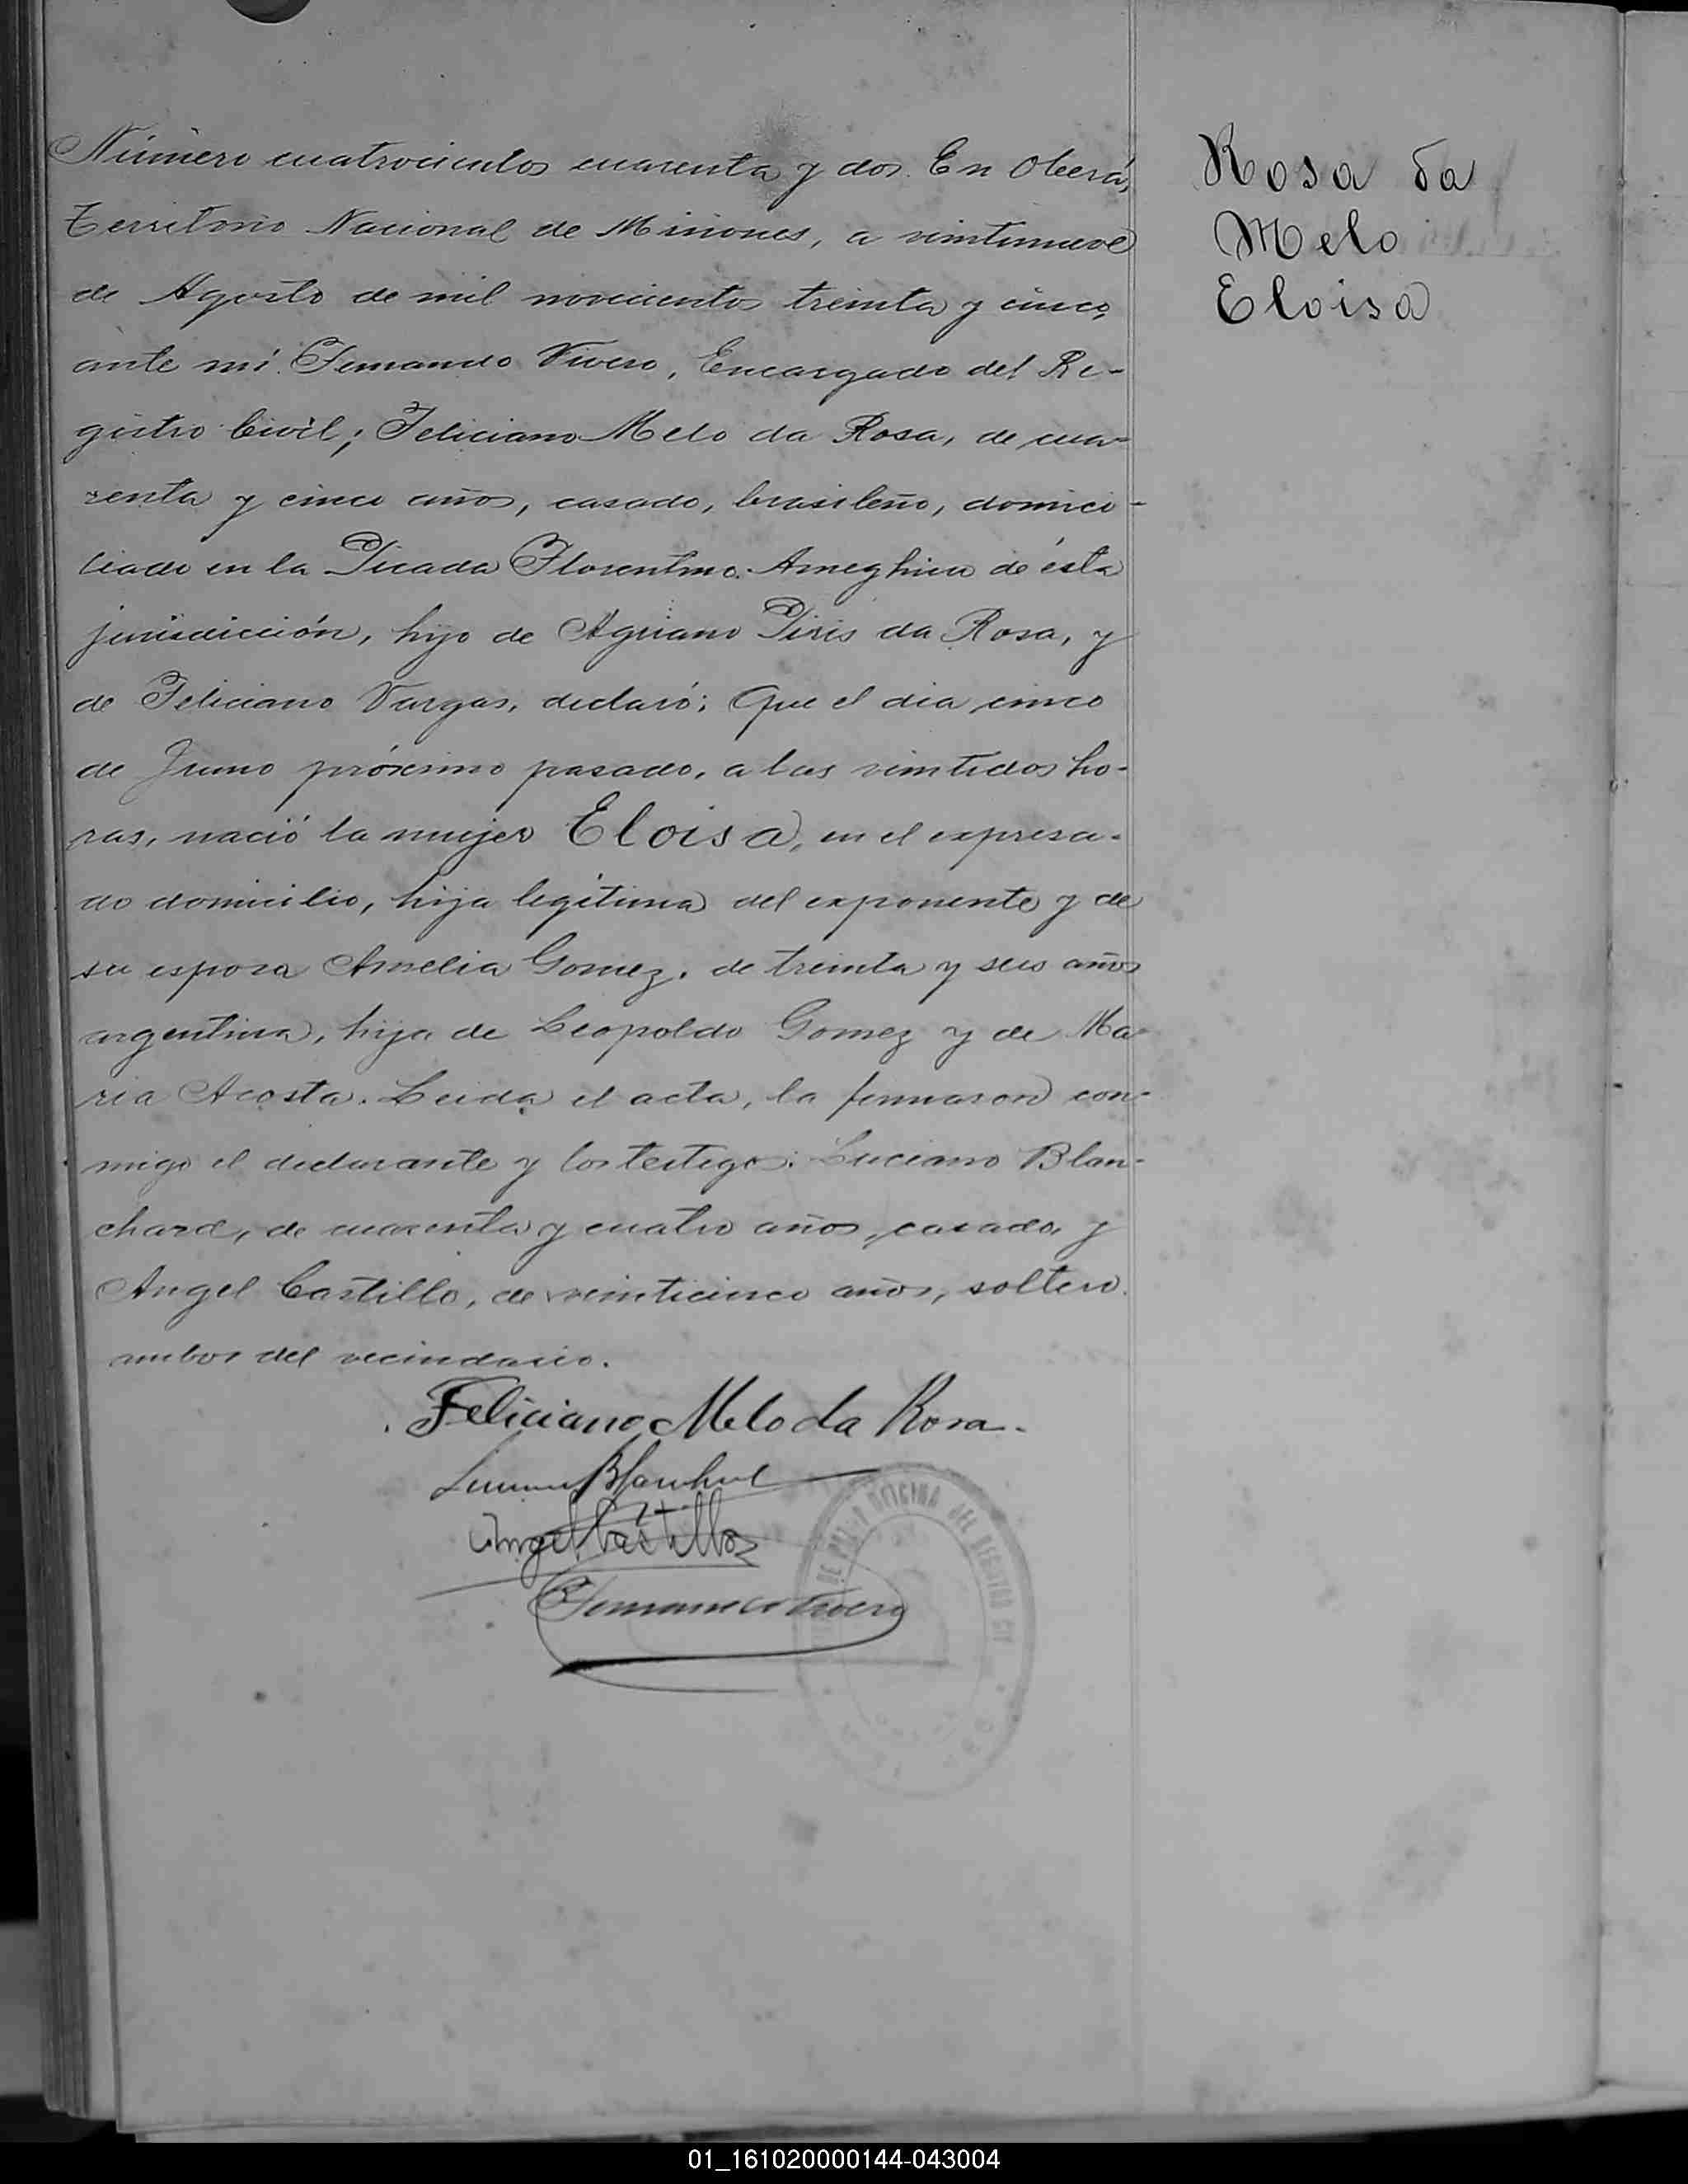 Número cuatrocientos cuarenta y dos. En Oberá,
Territorio Nacional de Misiones, a veintinueve
de Agosto de mil novecientos treinta y cinco,
ante mi Fernando Vivero, Encargado del Re-
gistro Civil; Feliciano Melo da Rosa, de cua-
renta y cinco años, casado, brasileño, domici-
liado en la Picada Florentino Ameghino de ésta
jurisdicción, hijo de Agriano Piris da Rosa, y
de Feliciano Vargas, declaró: Que el dia cinco
de Junio próximo pasado, a las veintidos ho-
ras, nació la mujer Eloisa, en el expresa-
do domicilio, hija legítima del exponente y de
su esposa Amelia Gomez, de treinta y seis años
argentina, hija de Leopoldo Gomez y de Ma-
ria Acosta. Leida el acta, la firmaron con-
migo el declarante y los testigos: Luciano Blan-
chard, de cuarenta y cuatro años, casado, y
Angel Castillo, de veinticinco años, soltero
ambos del vecindario.
Feliciano Melo da Rosa.
Luciano Blanchard
Angel Castillo
Fernando Vivero
OFICINA DEL REGISTRO CIVIL
Rosa da
Melo
Eloisa
01_161020000144-043004